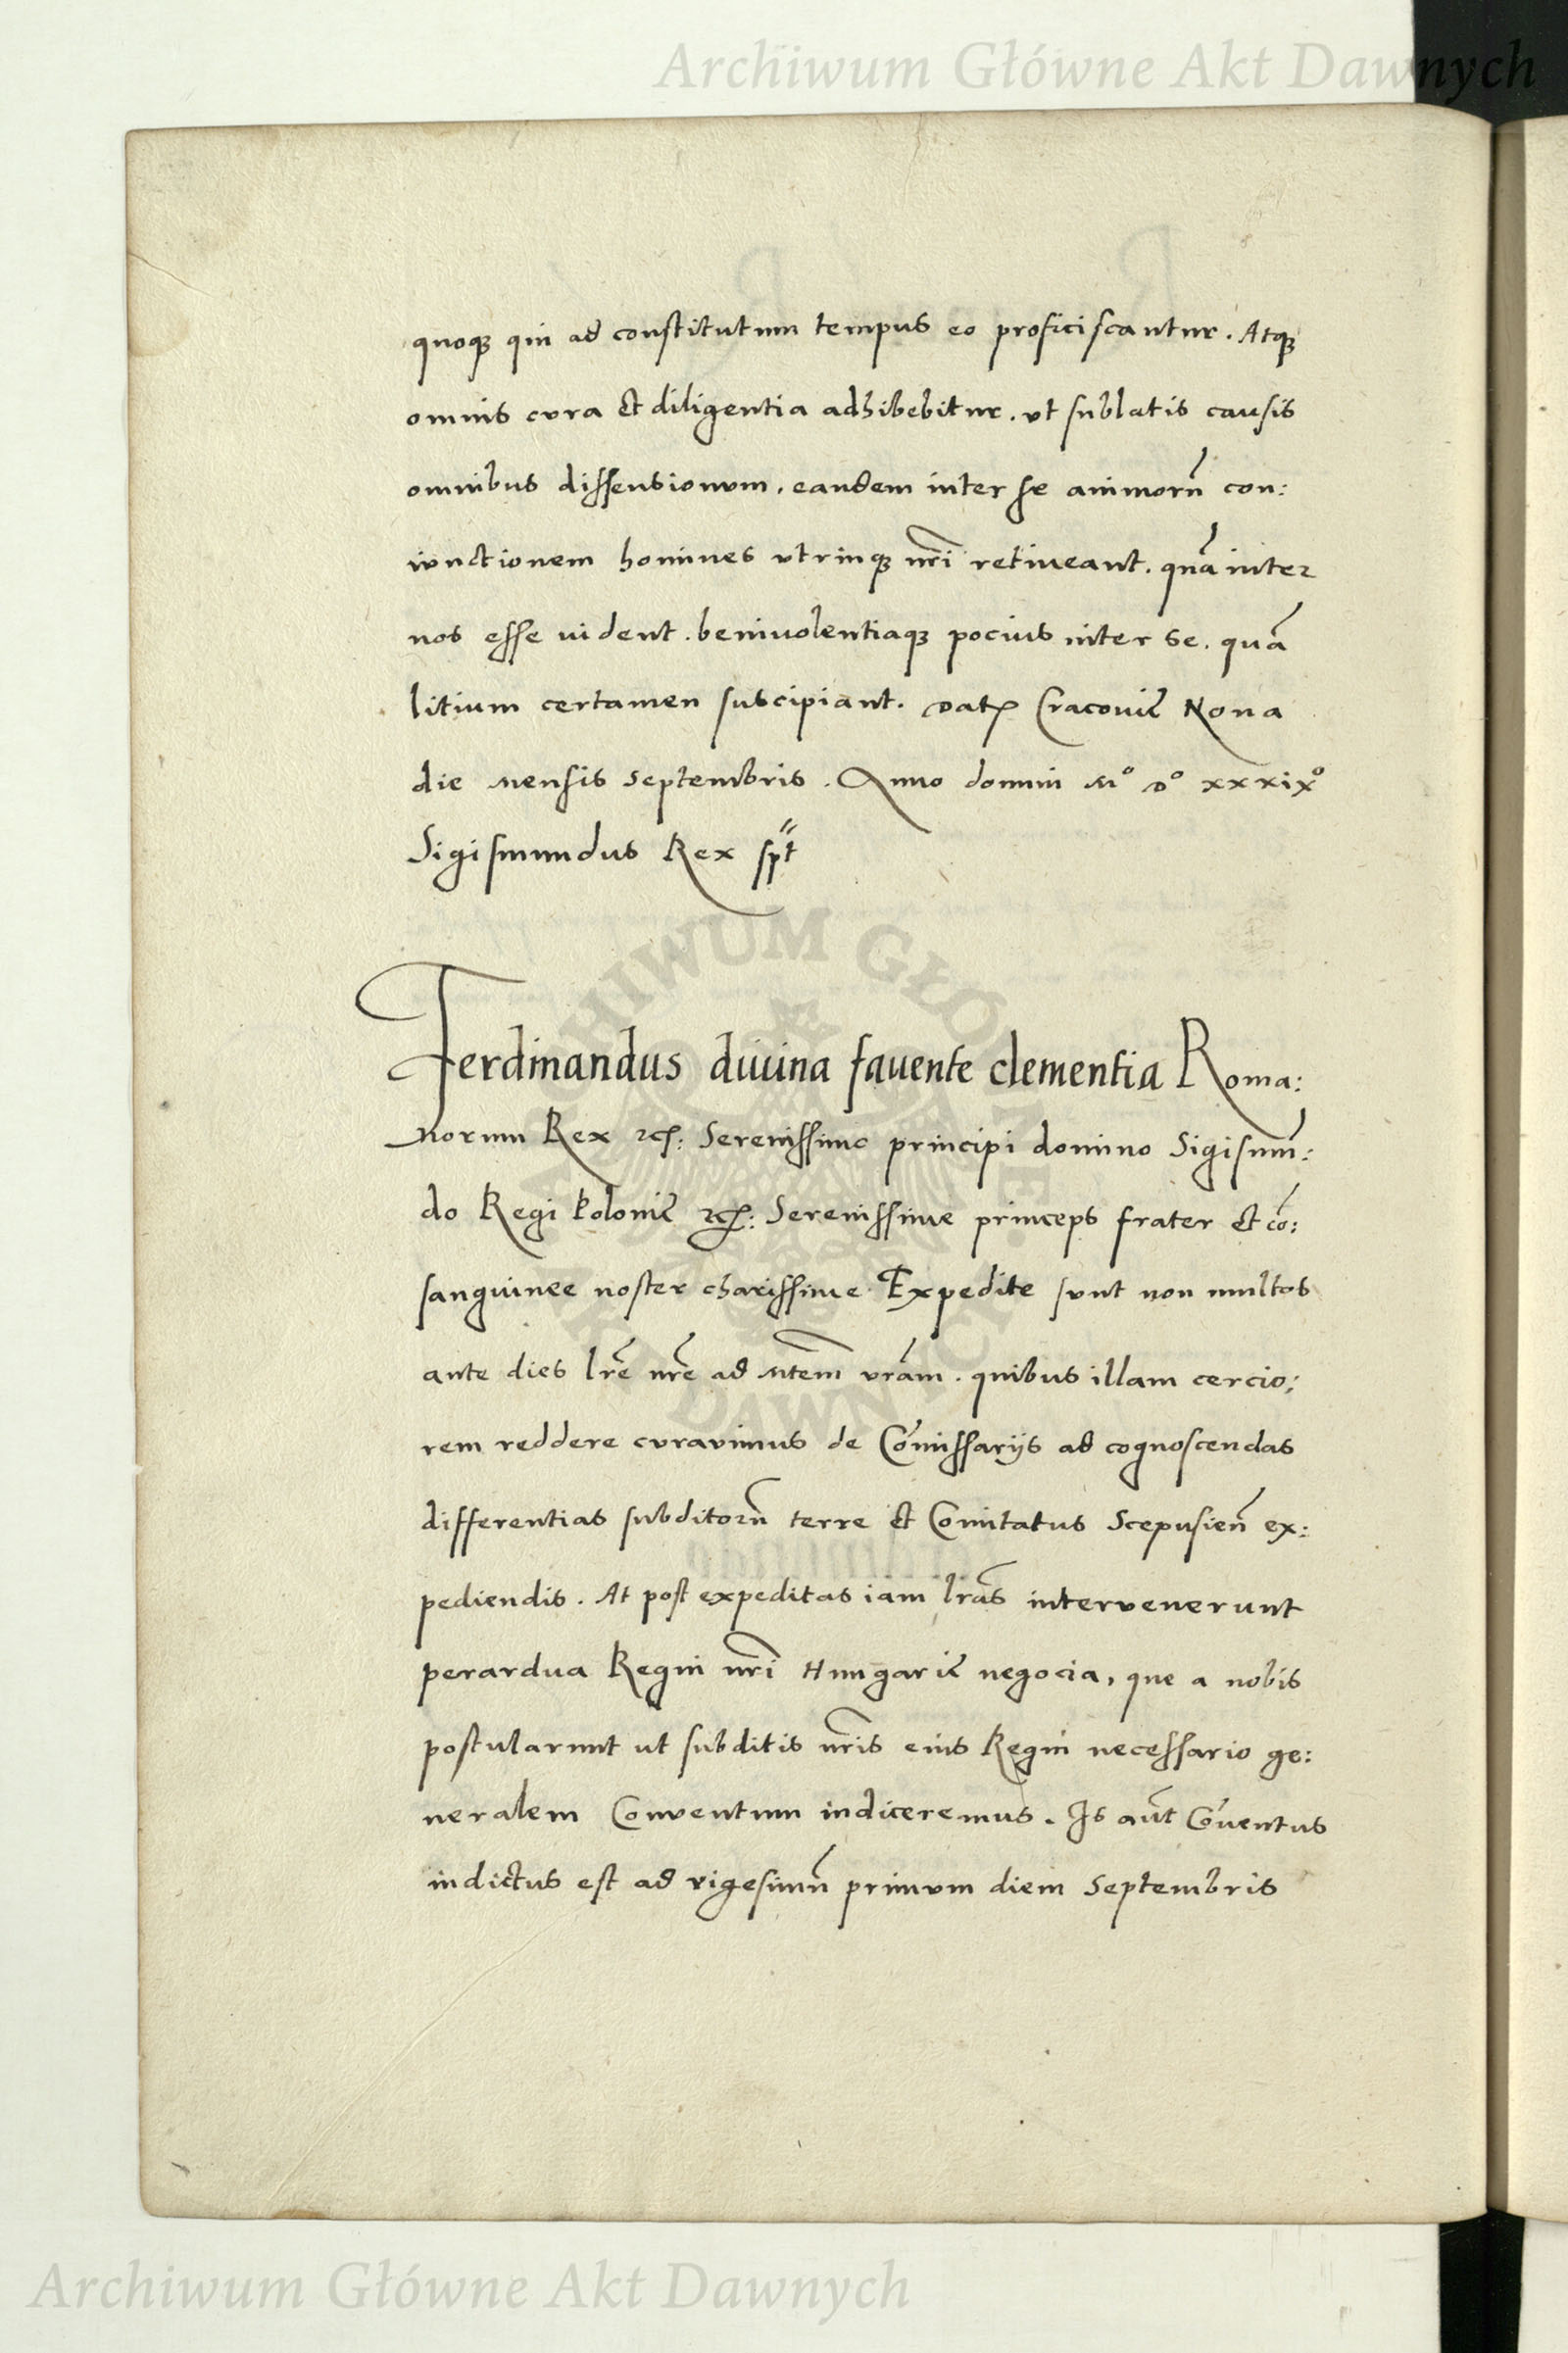 Archiwum Główne Akt Dawnych
quoqꝫ qui ad constitutum tempus eo proficiscantur. Atqꝫ
omnis cura et diligentia adhibebitur. ut sublatis causis
omnibus dissensionum, eandem inter se animorū con:
iunctionem homines utrinqꝫ nr̄i retineant. quā inter
nos esse uident. beniuolentiaqꝫ pocius inter se. quā
litium certamen subcipiant. Datꝭ Cracouię Nona
die mensis Septembris. Anno domini Mº Dº xxxixº
Sigismundus Rex sp̄t
Ferdinandus diuina fauente clementia Roma:
norum Rex ⁊cꝭ: Serenissimo principi domino Sigismū:
do Regi Polonię ⁊cꝭ: Serenissime princeps frater et cō:
sanguinee noster charissime Expedite sunt non multos
ante dies lr̄e nr̄e ad Mtem vrām. quibus illam cercio:
rem reddere curavimus de Com̄issarijs ad cognoscendas
differentias subditorū terre et Comitatus Scepusien̄ ex:
pediendis. At post expeditas iam lr̄as intervenerunt
perardua Regni nr̄i Hungarię negocia, que a nobis
postularunt ut subditis nr̄is eius Regni necessario ge:
neralem Conventum indiceremus. Is aūt Cōuentus
indictus est ad vigesimū primum diem Septembris
ARCHIWUM GŁÓWNE AKT DAWNYCH
Archiwum Główne Akt Dawnych